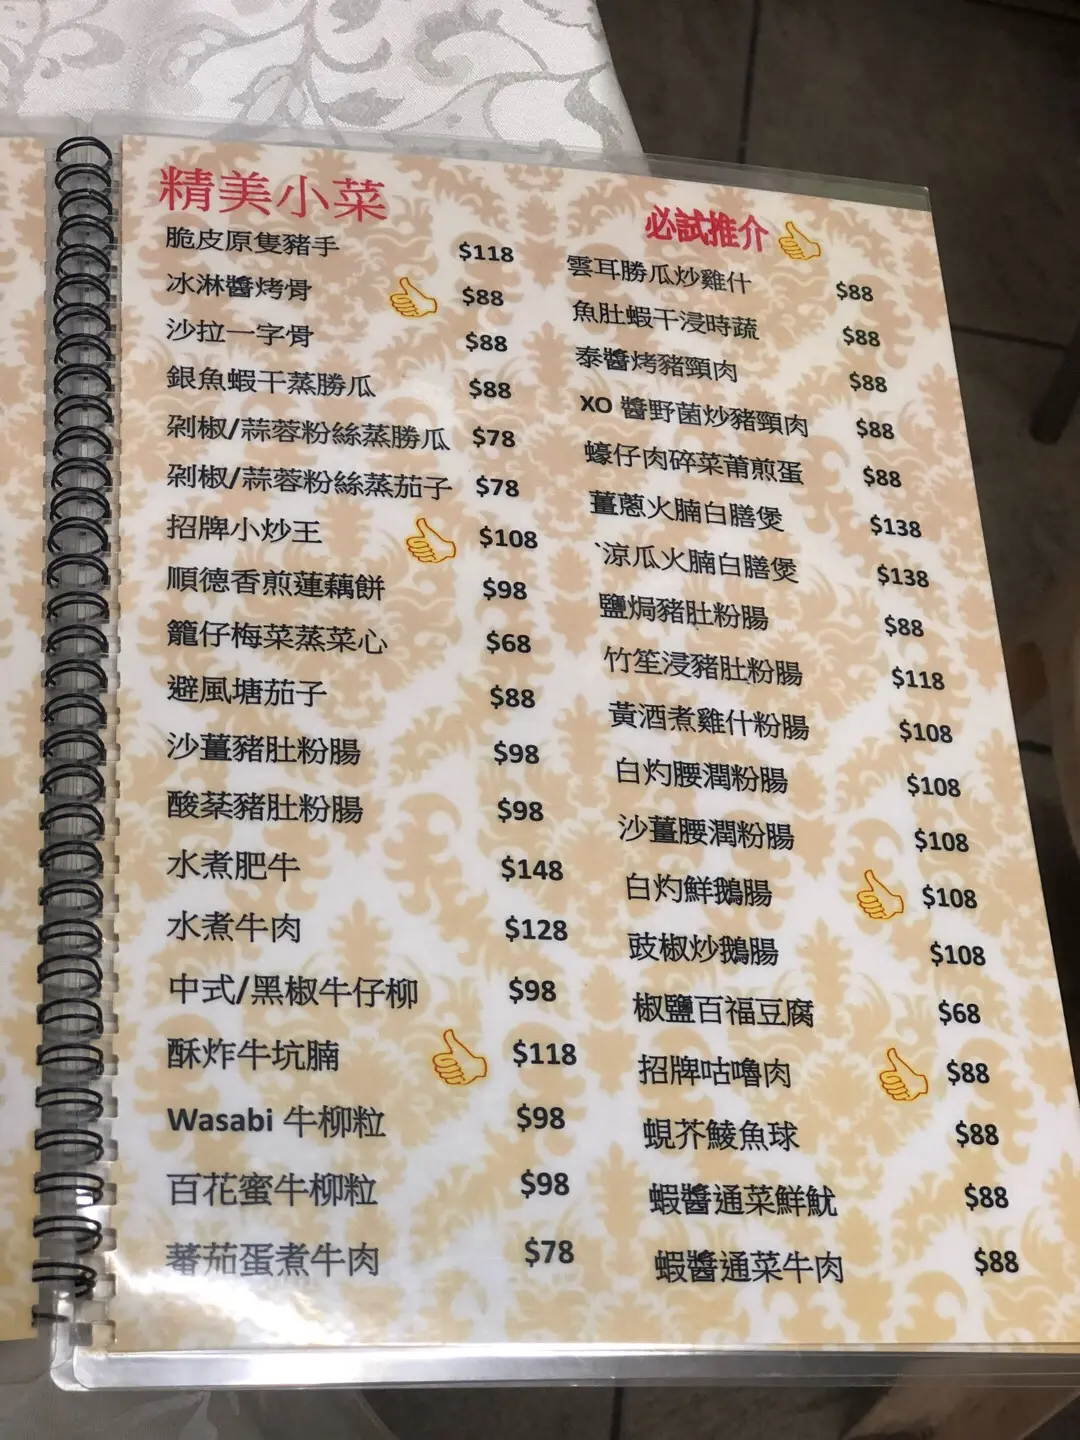 精美小菜
脆皮原隻豬手 $118
冰淋醬烤骨 $88
沙拉一字骨 $88
銀魚蝦干蒸勝瓜 $88
剁椒/蒜蓉粉絲蒸勝瓜 $78
剁椒/蒜蓉粉絲蒸茄子 $78
招牌小炒王 $108
順德香煎蓮藕餅 $98
籠仔梅菜蒸菜心 $68
避風塘茄子 $88
沙薑豬肚粉腸 $98
酸菜豬肚粉腸 $98
水煮肥牛 $148
水煮牛肉 $128
中式/黑椒牛仔柳 $98
酥炸牛坑腩 $118
Wasabi 牛柳粒 $98
百花蜜牛柳粒 $98
蕃茄蛋煮牛肉 $78
必試推介
雲耳勝瓜炒雞什 $88
魚肚蝦干浸時蔬 $88
泰醬烤豬頸肉 $88
XO 醬野菌炒豬頸肉 $88
蠔仔肉碎菜莆煎蛋 $88
薑蔥火腩白膳煲 $138
涼瓜火腩白膳煲 $138
鹽焗豬肚粉腸 $88
竹笙浸豬肚粉腸 $118
黃酒煮雞什粉腸 $108
白灼腰潤粉腸 $108
沙薑腰潤粉腸 $108
白灼鮮鵝腸 $108
豉椒炒鵝腸 $108
椒鹽百福豆腐 $68
招牌咕嚕肉 $88
蜆芥鯪魚球 $88
蝦醬通菜鮮魷 $88
蝦醬通菜牛肉 $88